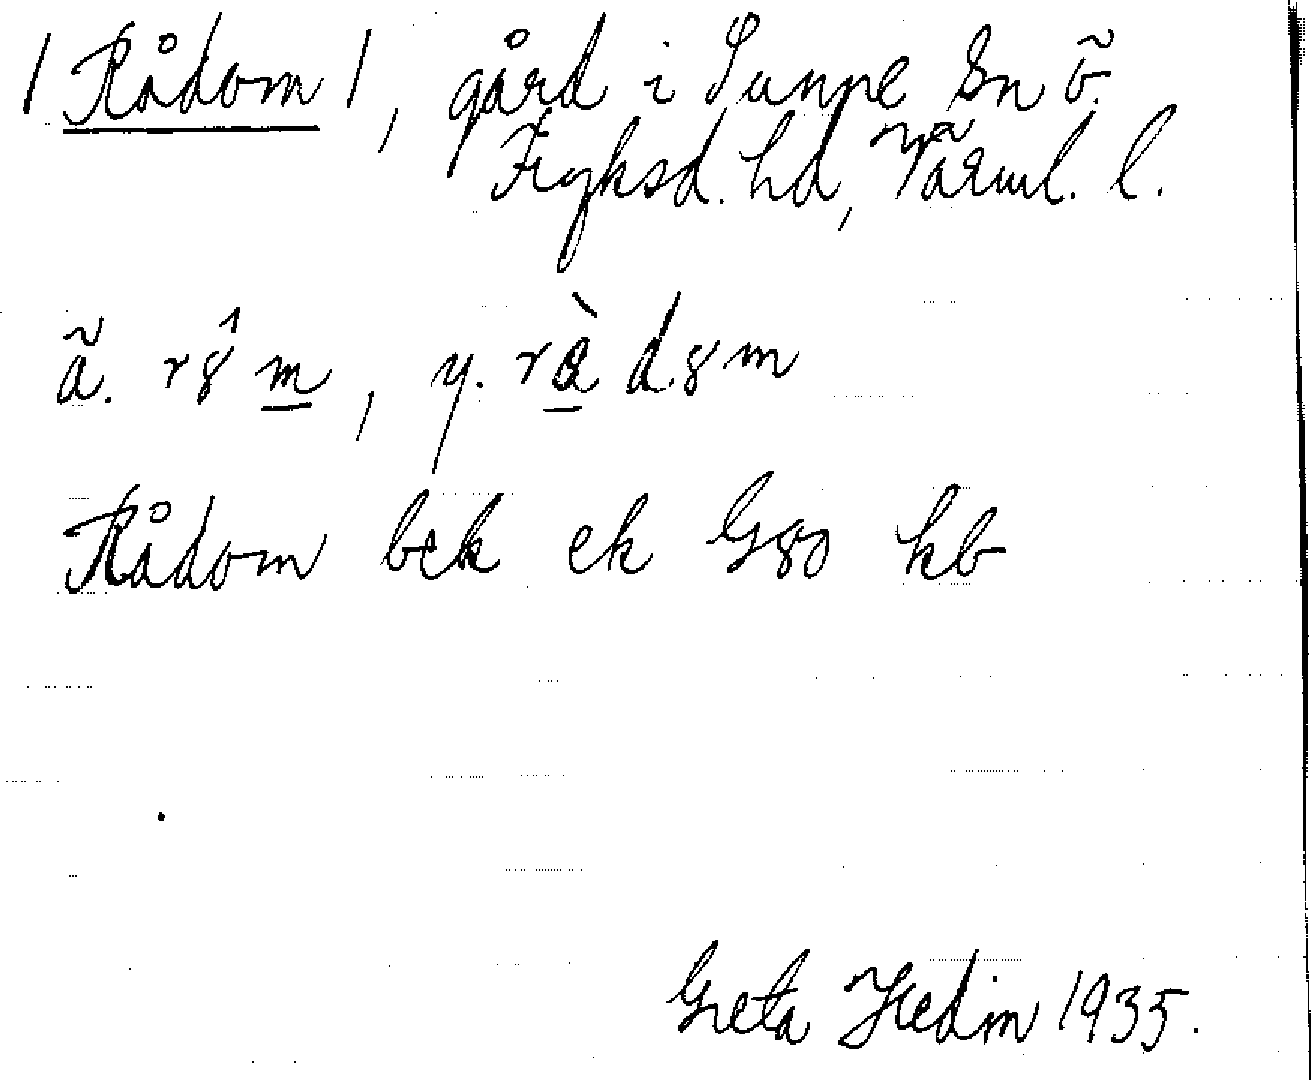 / Rådom /, gård i Sunne sn ö.
Fryksd. hd, Värml. l.
ä. r8̂m, y. ràd8m
Rådom bek ek G80 kb
Greta Hedin 1935.